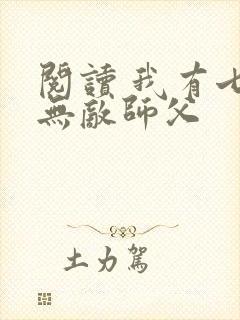 閱讀我有七
無敵師父
土力駕